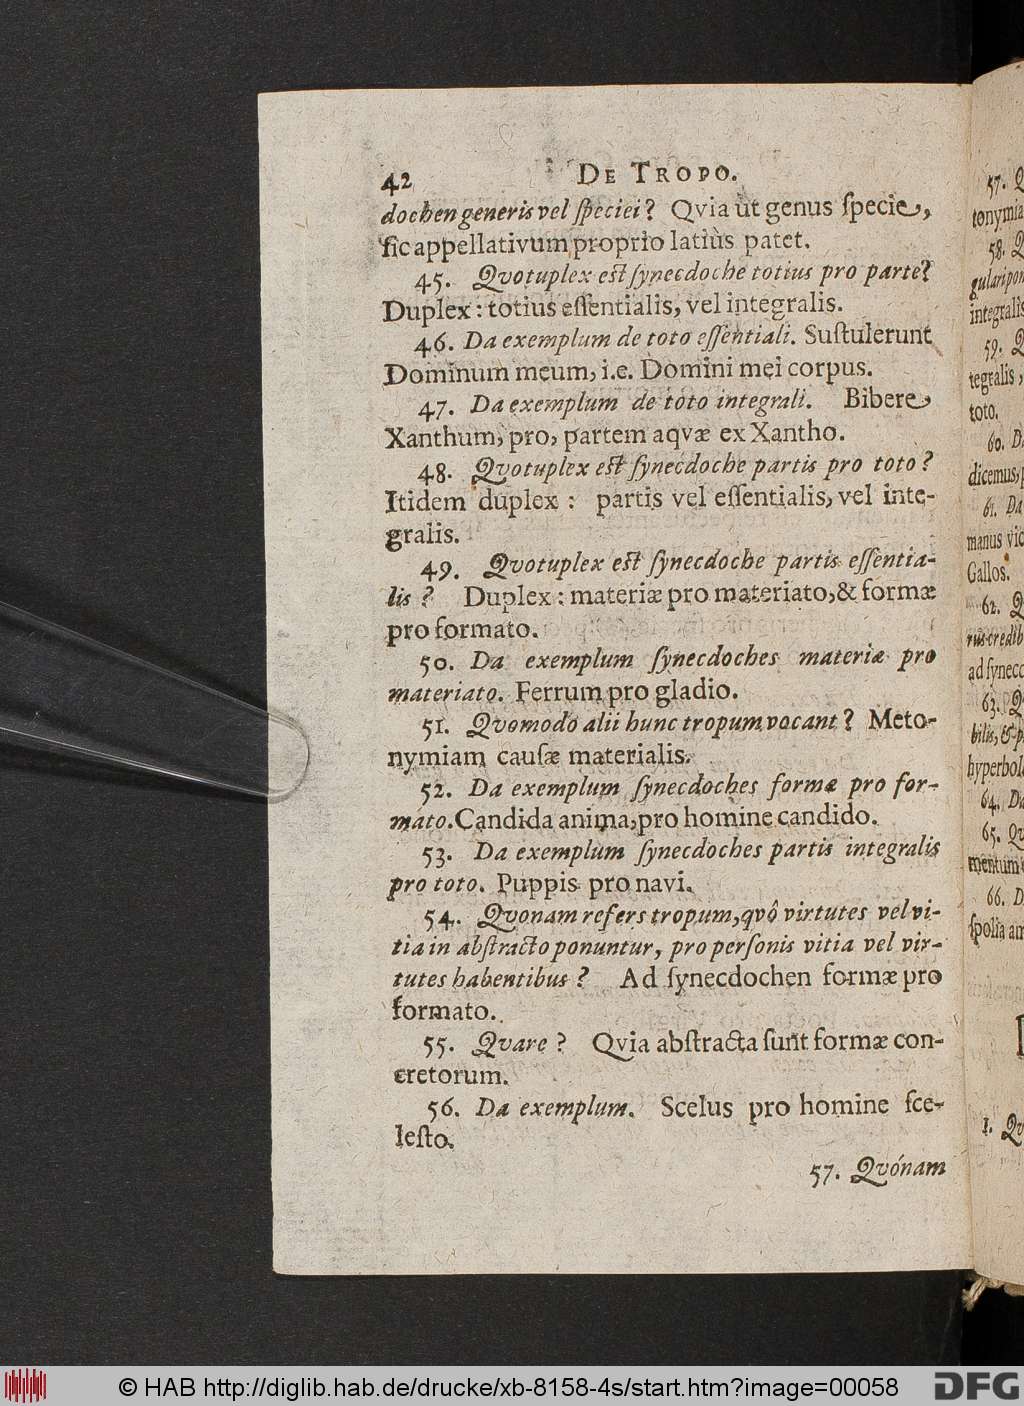 42 DE TROPO.
dochen generis vel ſpeciei? Qvia ut genus ſpecie,
ſic appellativum proprio latiùs patet.
45. Qvotuplex eſt ſynecdoche totius pro parte?
Duplex: totius eſſentialis, vel integralis.
46. Da exemplum de toto eſſentiali. Suſtulerunt
Dominum meum, i.e. Domini mei corpus.
47. Da exemplum de toto integrali. Bibere
Xanthum, pro, partem aqvæ ex Xantho.
48. Qvotuplex eſt ſynecdoche partis pro toto?
Itidem duplex: partis vel eſſentialis, vel inte-
gralis.
49. Qvotuplex eſt ſynecdoche partis eſſentia-
lis? Duplex: materiæ pro materiato, & formæ
pro formato.
50. Da exemplum ſynecdoches materiæ pro
materiato. Ferrum pro gladio.
51. Qvomodo alii hunc tropum vocant? Meto-
nymiam cauſæ materialis.
52. Da exemplum ſynecdoches formæ pro for-
mato. Candida anima, pro homine candido.
53. Da exemplum ſynecdoches partis integralis
pro toto. Puppis pro navi.
54. Qvonam refers tropum, qvô virtutes vel vi-
tia in abſtracto ponuntur, pro perſonis vitia vel vir-
tutes habentibus? Ad ſynecdochen formæ pro
formato.
55. Qvare? Qvia abſtracta ſunt formæ con-
cretorum.
56. Da exemplum. Scelus pro homine ſce-
leſto.
57. Qvónam
57. Q
tonymia
58. Q
gulari pon
integralis
59. Q
tegralis,
toto.
60. D
dicemus, p
61. Da
manus vic
Gallos.
62. Q
rius credib
ad ſynecd
63. Q
bilis, & p
hyperbol
64. Da
65. Qv
mentum
66. D
ſpolia am
1. Qv
© HAB http://diglib.hab.de/drucke/xb-8158-4s/start.htm?image=00058
DFG